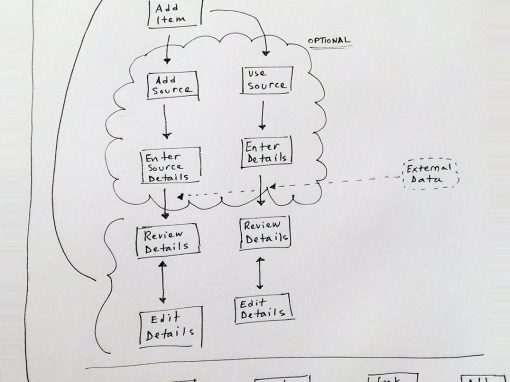 Add
Item
OPTIONAL
Add
Source
Use
Source
Enter
Source
Details
Enter
Details
External
Data
Review
Details
Review
Details
Edit
Details
Edit
Details